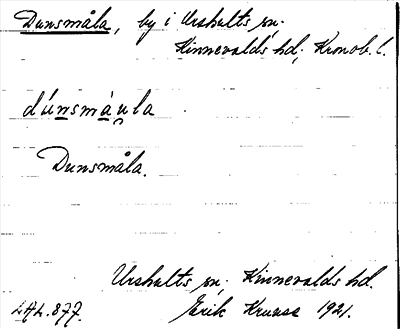 Dunsmåla, by i Urshults sn.
Kinnevalds hd, Kronob. l.
dúnsmàu̯la
Dunsmåla.
Urshults sn, Kinnevalds hd.
LAL. 877. Erik Kruuse 1921.